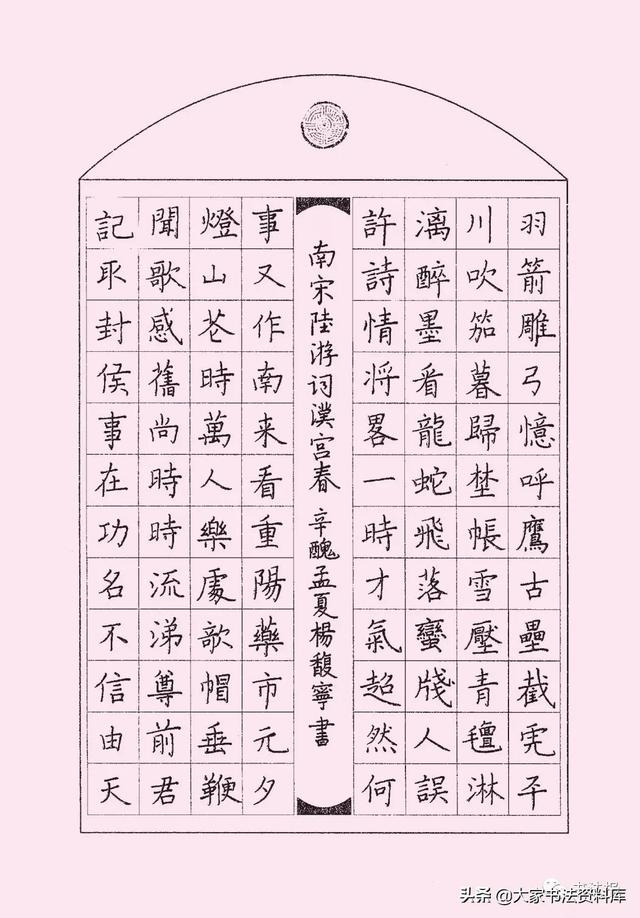 羽箭雕弓憶呼鷹古壘截虎平
川吹笳暮歸埜帳雪壓青氊淋
漓醉墨看龍蛇飛落蠻牋人誤
許詩情将畧一時才氣超然何
南宋陸游词漢宫春 辛醜孟夏楊馥寧書
事又作南来看重陽藥市元夕
燈山芲時萬人樂處歌帽垂鞭
聞歌感舊尚時時流涕尊前君
記取封侯事在功名不信由天
头条 @大家书法资料库